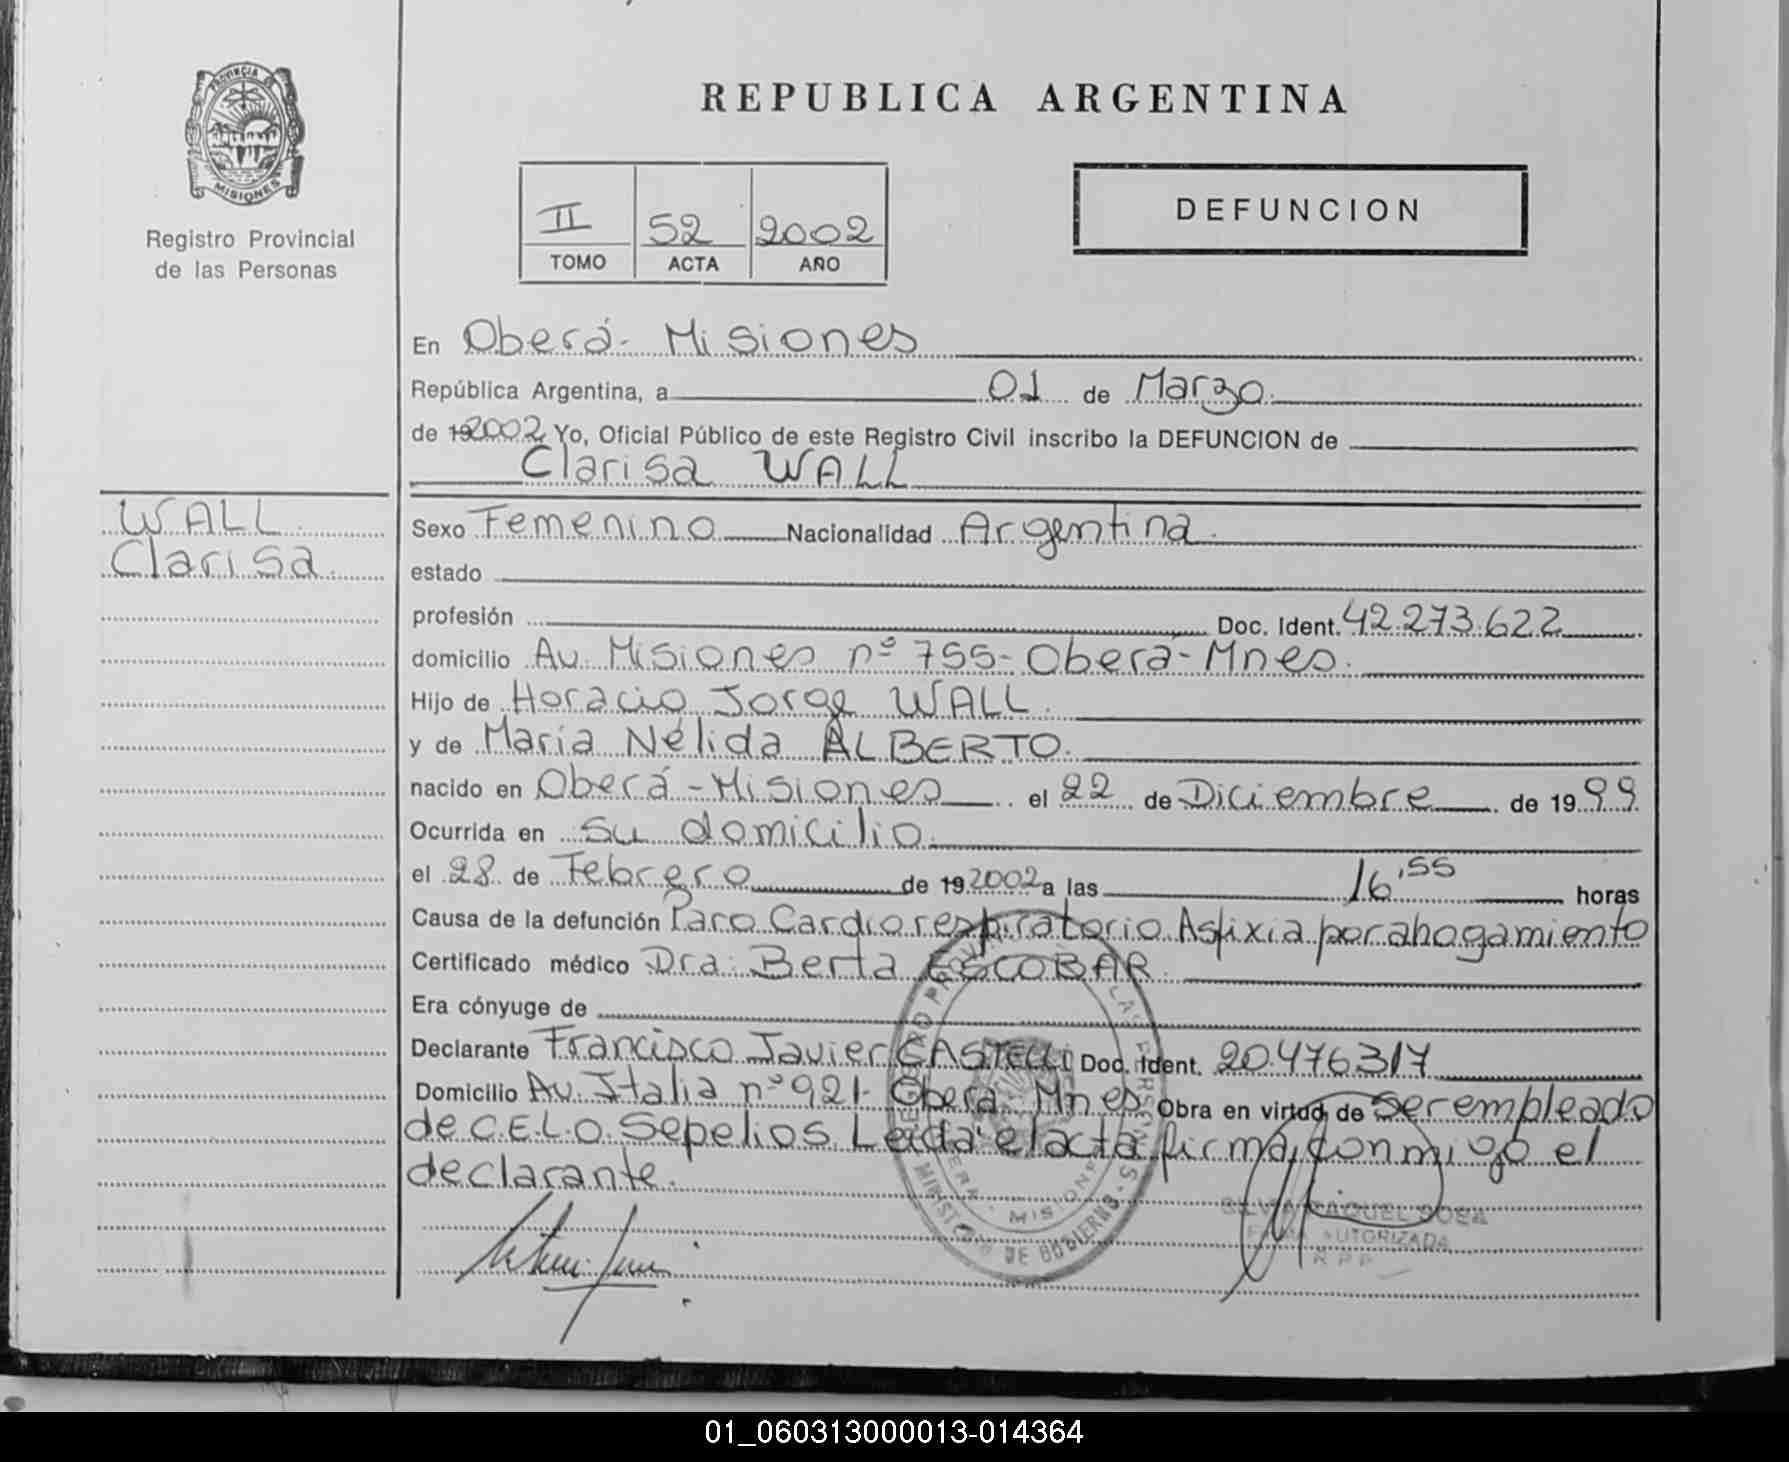 PROVINCIA
MISIONES
Registro Provincial
de las Personas
REPUBLICA ARGENTINA
II 52 2002
TOMO ACTA AÑO
DEFUNCION
En Oberá - Misiones
República Argentina, a 01 de Marzo
de 192002 Yo, Oficial Público de este Registro Civil inscribo la DEFUNCION de
Clarisa WALL
WALL
Clarisa
Sexo Femenino Nacionalidad Argentina
estado
profesión Doc. Ident. 42.273.622
domicilio Av. Misiones nº 755- Oberá - Mnes.
Hijo de Horacio Jorge WALL
y de Maria Nélida ALBERTO.
nacido en Oberá - Misiones el 22 de Diciembre de 1999
Ocurrida en su domicilio
el 28 de Febrero de 192002 a las 16,55 horas
Causa de la defunción Paro Cardiorespiratorio Asfixia por ahogamiento
Certificado médico Dra. Berta ESCOBAR
Era cónyuge de
Declarante Francisco Javier CASTELLI Doc. Ident. 20.476.317
Domicilio Av. Italia nº 921- Oberá Mnes Obra en virtud de Ser empleado
de C.E.L.O. Sepelios. Leida el acta firma conmigo el
declarante.
MINISTERIO DE GOBIERNO
SILVIA RAQUEL SOSA
FIRMA AUTORIZADA
R P P
01_060313000013-014364